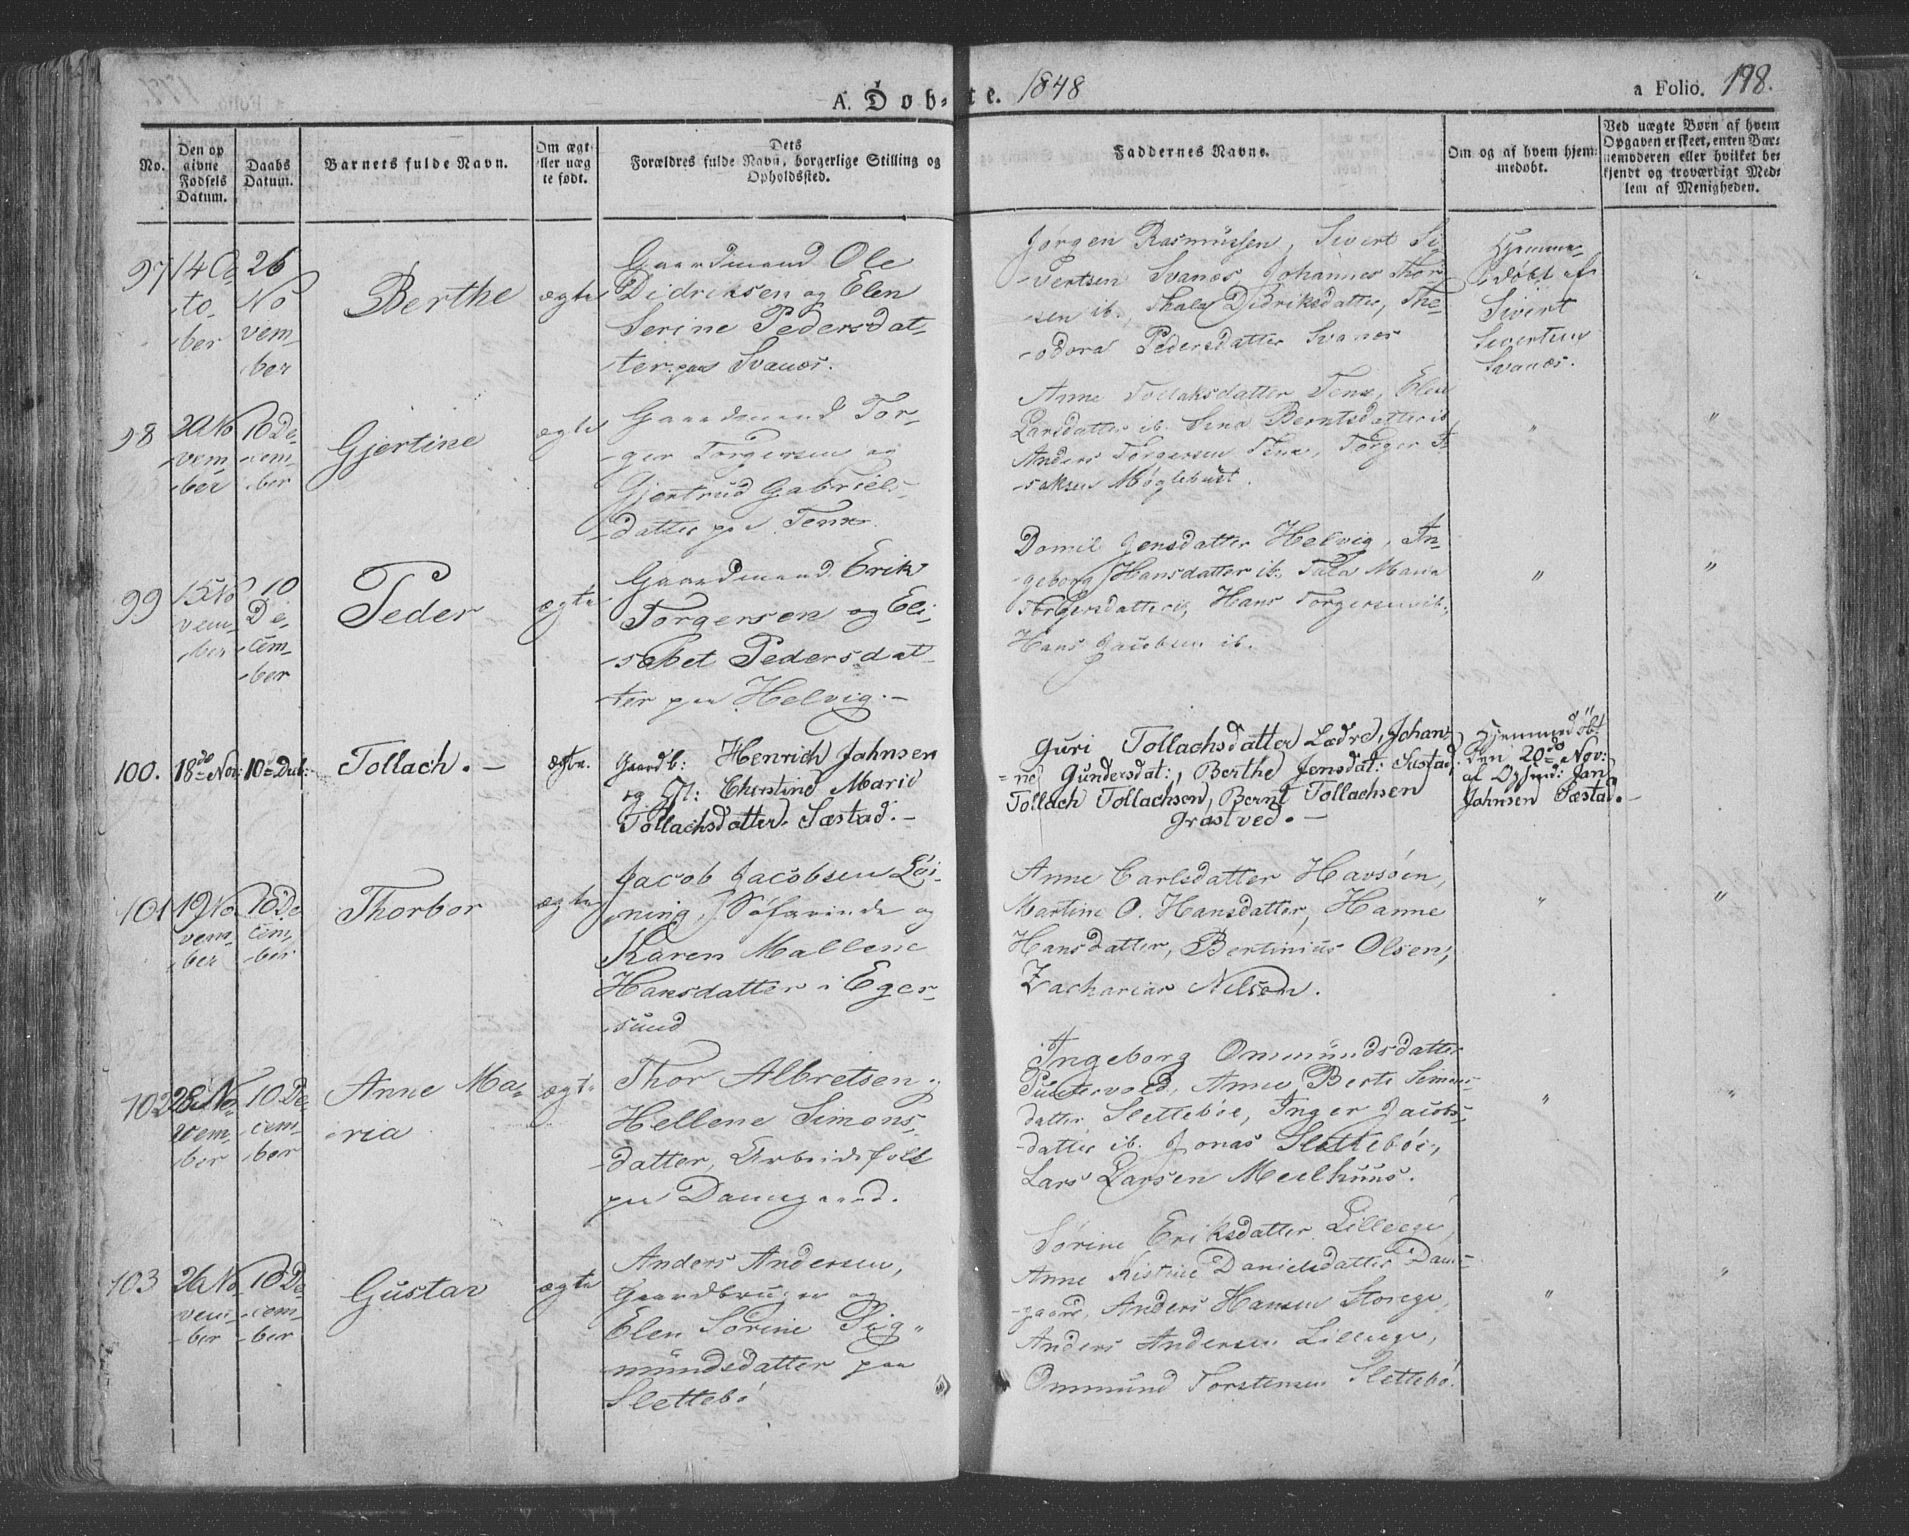 A. Døb-te. 1848
a Folio. 198.
No.
Den op
givne
Fødsels
Datum.
Daabs
Datum.
Barnets fulde Navn.
Om ægt
eller uæg
te født.
Dets
Forældres fulde Navn, borgerlige Stilling og
Opholdssted.
Faddernes Navne.
Om og af hvem hjem-
medøbt.
Ved uægte Børn af hvem
Opgaven er skeet, enten Bar-
nemoderen eller hvilket be-
kjendt og troværdigt Med-
lem af Menigheden.
97
14 Oc
to-
ber
26
No
vem-
ber
Berthe
ægte
Gaardmand Ole
Didriksen og Elen
Serine Pedersdat-
ter paa Svanæs.
Jørgen Rasmussen, Sivert Si-
vertsen Svanæs, Johannes Thor-
sen ib., Thala Didriksdatter, The-
odora Pedersdatter Svanæs
Hjemme-
døbt af
Sivert
Sivertsen
Svanæs.
98
20 No
vem-
ber
10 De-
cem-
ber
Gjertine
ægte
Gaardmand Tor-
ger Torgersen og
Gjertrud Gabriels-
datter paa
Anne Tollaksdatter Elen
Larsdatter ib. Sina Berntsdatter ib
Anders Torgersen Torger I-
saksen Møglebust.
"
99
15 No
vem-
ber
10
De-
cem-
ber
Peder
ægte
Gaardmand Erik
Torgersen og Eli-
sabet Pedersdat-
ter paa Helvig.-
Domil Jensdatter Helvig, In-
geborg Hansdatter ib. Tala Maria
Torgersdatter ib, Hans Torgersen ib.
Hans Jacobsen ib.
"
"
100.
18de Nov:
10de Decb:
Tollach.-
ægte.
Gaardb: Henrich Johnsen
og H: Christine Marie
Tollachsdatter. Sæstad.-
Guri Tollachsdatter Lædre, Johan-
ne Gundersdat:, Berthe Jensdat: Sæstad,
Tollach Tollachsen, Bernt Tollachsen
Grastved.-
Hjemmedøbt
den 20de Nov:
af Jan
Johnsen Sæstad.-
101
19 No
vem-
ber
10 De
cem-
ber
Thorbor
ægte
Jacob Jacobsen Løi-
ning, Søfarende og
Karen Mallene
Hansdatter i Eger-
sund
Anne Carlsdatter Havsøen,
Martine O. Hansdatter, Hanne
Hansdatter, Bertinius Olsen,
Zacharias Nilsen.
"
"
102
28 No-
vem-
ber
10 De-
cem-
ber
Anne Ma-
ria
ægte
Thor Albretsen og
Hellene Simons-
datter, Arbeidsfolk
paa Damsgaard.
Ingeborg Ommundsdatter
Puntervold, Anne Berte Simons-
datter, Slettebøe, Inger Jacobs-
datter ib. Jonas Slettebøe,
Lars Larsen Meelhuus.
"
"
103
26 No
vem-
ber
10 De-
cem-
ber
Gustav
ægte
Anders Andersen,
Gaardbruger og
Elen Sørine Sig-
mundsdatter paa
Slettebø
Sørine Eriksdatter Lilleege,
Anne Kistine Danielsdatter Dam-
gaard, Anders Hansen Storege,
Anders Andersen Lilleege,
Ommund Torstensen Slettebø.
"
"